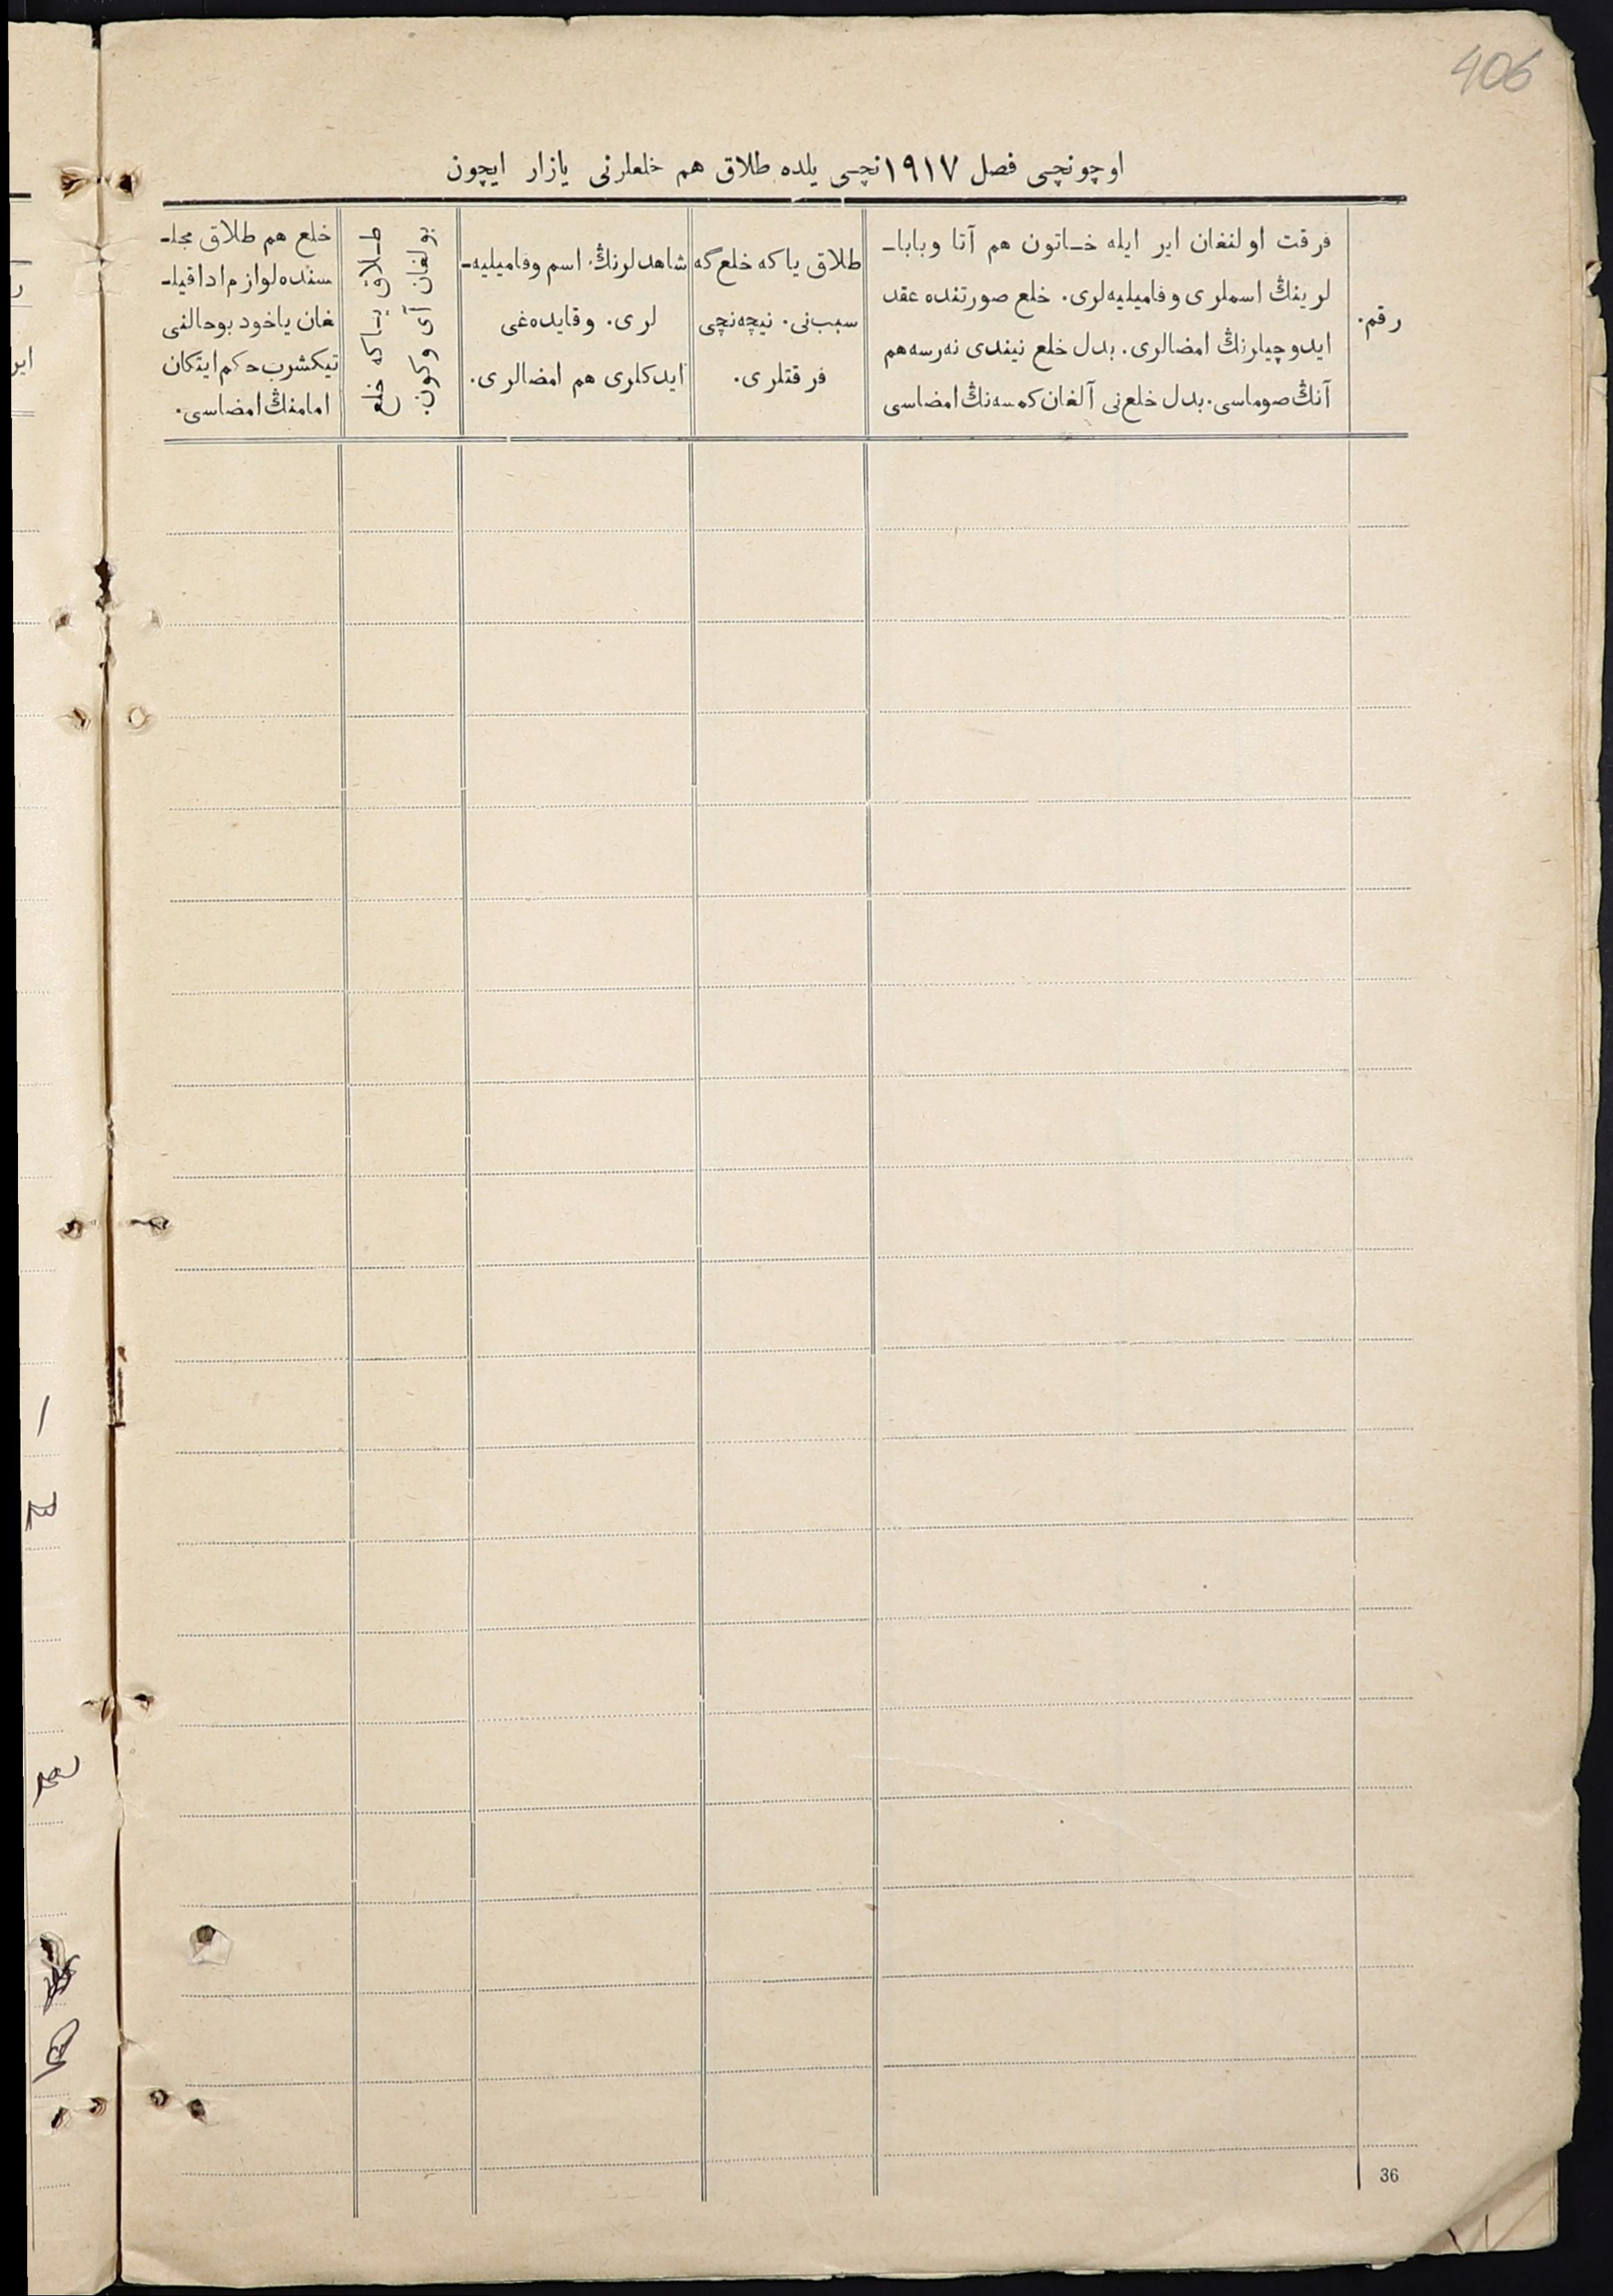 406
اوچونچی فصل ١٩١٧نچی یلده طلاق هم خلعلرنی یازار ایچون
رقم.
فرقت اولنغان ایر ایله خاتون هم آتا وبابا-
لرینڭ اسملری وفامیلیه‌لری. خلع صورتنده عقد
ایدوچیلرنڭ امضالری. بدل خلع نیندی نه‌رسه هم
آنڭ صوماسی. بدل خلع‌نی آلغان کمسه‌نڭ امضاسی
طلاق یاکه خلع‌گه
سبب‌نی. نیچه‌نچی
فرقتلری.
شاهدلرنڭ اسم وفامیلیه-
لری. وقایده‌غی
ایدکلری هم امضالری.
طلاق یاکه خلع
بولغان آی وکون.
خلع هم طلاق مجلـ-
سنده لوازم ادا قیلـ-
غان یاخود بوحالنی
تیکشرب حکم ایتکان
امامنڭ امضاسی.
36